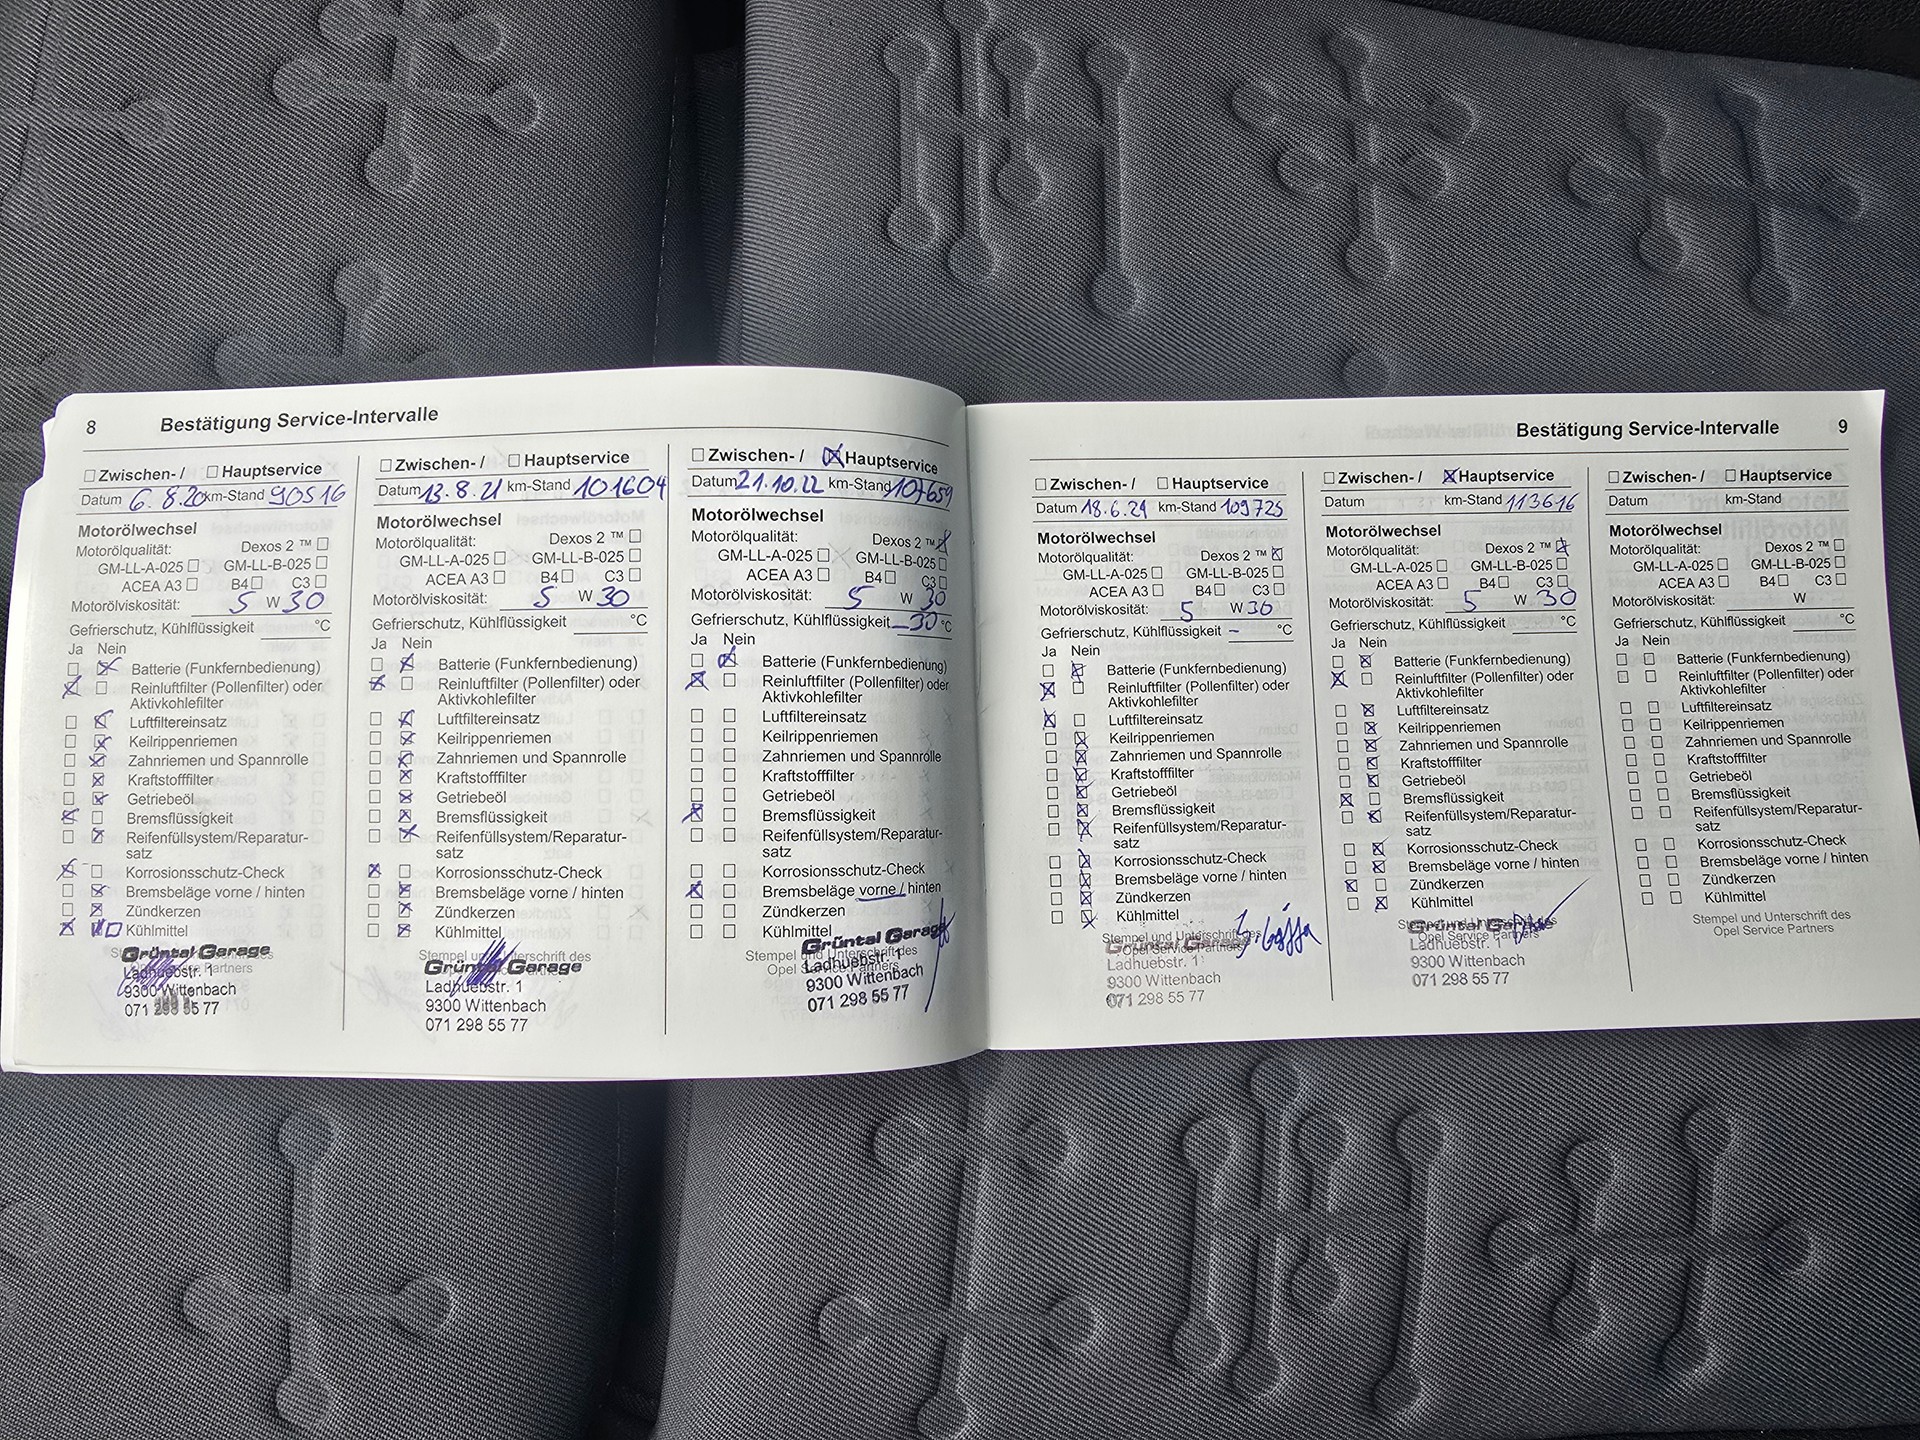 8 Bestätigung Service-Intervalle
Zwischen- / Hauptservice
Datum 6.8.20 km-Stand 90516
Motorölwechsel
Motorölqualität: Dexos 2 ™
GM-LL-A-025 GM-LL-B-025
ACEA A3 B4 C3
Motorölviskosität: 5 W 30
Gefrierschutz, Kühlflüssigkeit °C
Ja Nein
Batterie (Funkfernbedienung)
Reinluftfilter (Pollenfilter) oder
Aktivkohlefilter
Luftfiltereinsatz
Keilrippenriemen
Zahnriemen und Spannrolle
Kraftstofffilter
Getriebeöl
Bremsflüssigkeit
Reifenfüllsystem/Reparatur-
satz
Korrosionsschutz-Check
Bremsbeläge vorne / hinten
Zündkerzen
Kühlmittel
Grüntal Garage
Ladhuebstr. 1
9300 Wittenbach
071 298 55 77
Zwischen- / Hauptservice
Datum 13.8.21 km-Stand 101604
Motorölwechsel
Motorölqualität: Dexos 2 ™
GM-LL-A-025 GM-LL-B-025
ACEA A3 B4 C3
Motorölviskosität: 5 W 30
Gefrierschutz, Kühlflüssigkeit °C
Ja Nein
Batterie (Funkfernbedienung)
Reinluftfilter (Pollenfilter) oder
Aktivkohlefilter
Luftfiltereinsatz
Keilrippenriemen
Zahnriemen und Spannrolle
Kraftstofffilter
Getriebeöl
Bremsflüssigkeit
Reifenfüllsystem/Reparatur-
satz
Korrosionsschutz-Check
Bremsbeläge vorne / hinten
Zündkerzen
Kühlmittel
Grüntal Garage
Ladhuebstr. 1
9300 Wittenbach
071 298 55 77
Zwischen- / Hauptservice
Datum 21.10.22 km-Stand 107659
Motorölwechsel
Motorölqualität: Dexos 2 ™
GM-LL-A-025 GM-LL-B-025
ACEA A3 B4 C3
Motorölviskosität: 5 W 30
Gefrierschutz, Kühlflüssigkeit -30 °C
Ja Nein
Batterie (Funkfernbedienung)
Reinluftfilter (Pollenfilter) oder
Aktivkohlefilter
Luftfiltereinsatz
Keilrippenriemen
Zahnriemen und Spannrolle
Kraftstofffilter
Getriebeöl
Bremsflüssigkeit
Reifenfüllsystem/Reparatur-
satz
Korrosionsschutz-Check
Bremsbeläge vorne / hinten
Zündkerzen
Kühlmittel
Stempel und Unterschrift des
Opel Service Partners
Grüntal Garage
Ladhuebstr. 1
9300 Wittenbach
071 298 55 77
Bestätigung Service-Intervalle 9
Zwischen- / Hauptservice
Datum 18.6.24 km-Stand 109725
Motorölwechsel
Motorölqualität: Dexos 2 ™
GM-LL-A-025 GM-LL-B-025
ACEA A3 B4 C3
Motorölviskosität: 5 W 30
Gefrierschutz, Kühlflüssigkeit – °C
Ja Nein
Batterie (Funkfernbedienung)
Reinluftfilter (Pollenfilter) oder
Aktivkohlefilter
Luftfiltereinsatz
Keilrippenriemen
Zahnriemen und Spannrolle
Kraftstofffilter
Getriebeöl
Bremsflüssigkeit
Reifenfüllsystem/Reparatur-
satz
Korrosionsschutz-Check
Bremsbeläge vorne / hinten
Zündkerzen
Kühlmittel
Stempel und Unterschrift des
Opel Service Partners
Grüntal Garage
Ladhuebstr. 1
9300 Wittenbach
071 298 55 77
Zwischen- / Hauptservice
Datum km-Stand 113616
Motorölwechsel
Motorölqualität: Dexos 2 ™
GM-LL-A-025 GM-LL-B-025
ACEA A3 B4 C3
Motorölviskosität: 5 W 30
Gefrierschutz, Kühlflüssigkeit °C
Ja Nein
Batterie (Funkfernbedienung)
Reinluftfilter (Pollenfilter) oder
Aktivkohlefilter
Luftfiltereinsatz
Keilrippenriemen
Zahnriemen und Spannrolle
Kraftstofffilter
Getriebeöl
Bremsflüssigkeit
Reifenfüllsystem/Reparatur-
satz
Korrosionsschutz-Check
Bremsbeläge vorne / hinten
Zündkerzen
Kühlmittel
Stempel und Unterschrift des
Opel Service Partners
Grüntal Garage
Ladhuebstr. 1
9300 Wittenbach
071 298 55 77
Zwischen- / Hauptservice
Datum km-Stand
Motorölwechsel
Motorölqualität: Dexos 2 ™
GM-LL-A-025 GM-LL-B-025
ACEA A3 B4 C3
Motorölviskosität: W
Gefrierschutz, Kühlflüssigkeit °C
Ja Nein
Batterie (Funkfernbedienung)
Reinluftfilter (Pollenfilter) oder
Aktivkohlefilter
Luftfiltereinsatz
Keilrippenriemen
Zahnriemen und Spannrolle
Kraftstofffilter
Getriebeöl
Bremsflüssigkeit
Reifenfüllsystem/Reparatur-
satz
Korrosionsschutz-Check
Bremsbeläge vorne / hinten
Zündkerzen
Kühlmittel
Stempel und Unterschrift des
Opel Service Partners